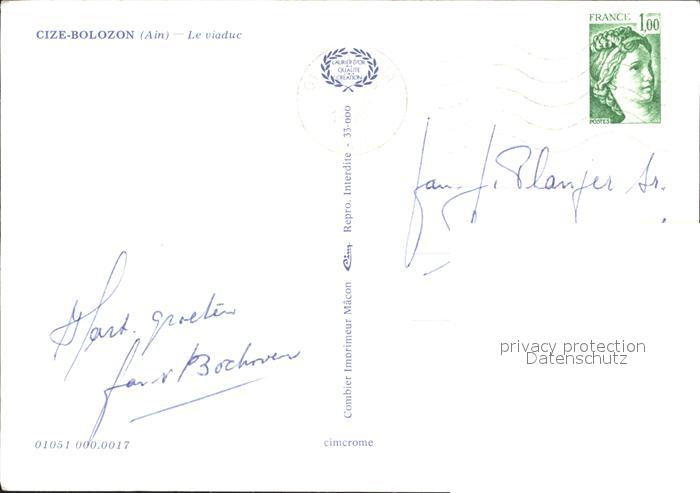 CIZE-BOLOZON (Ain) — Le viaduc
LAURIER D'OR
DE LA
QUALITÉ
CRÉATION
FRANCE
1,00
POSTES
J. Planjer Sr.
Hart. groeten
Bochoven
Combier Imprimeur Mâcon Cim Repro. Interdite - 33-000
privacy protection
Datenschutz
01051 000.0017
cimcrome